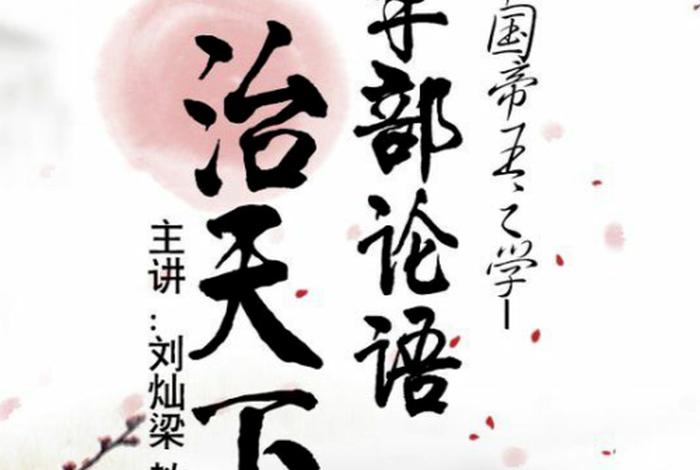 国帝王之学
部论语
治天下
主讲：刘灿梁